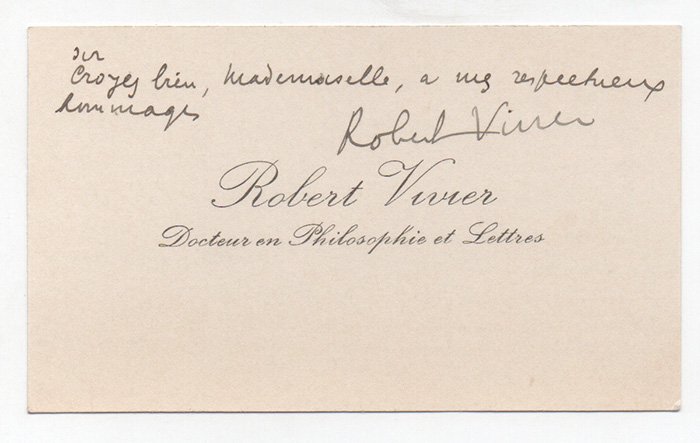 Croyez bien, Mademoiselle, a mes respectueux
hommages
Robert Vivier
Robert Vivier
Docteur en Philosophie et Lettres